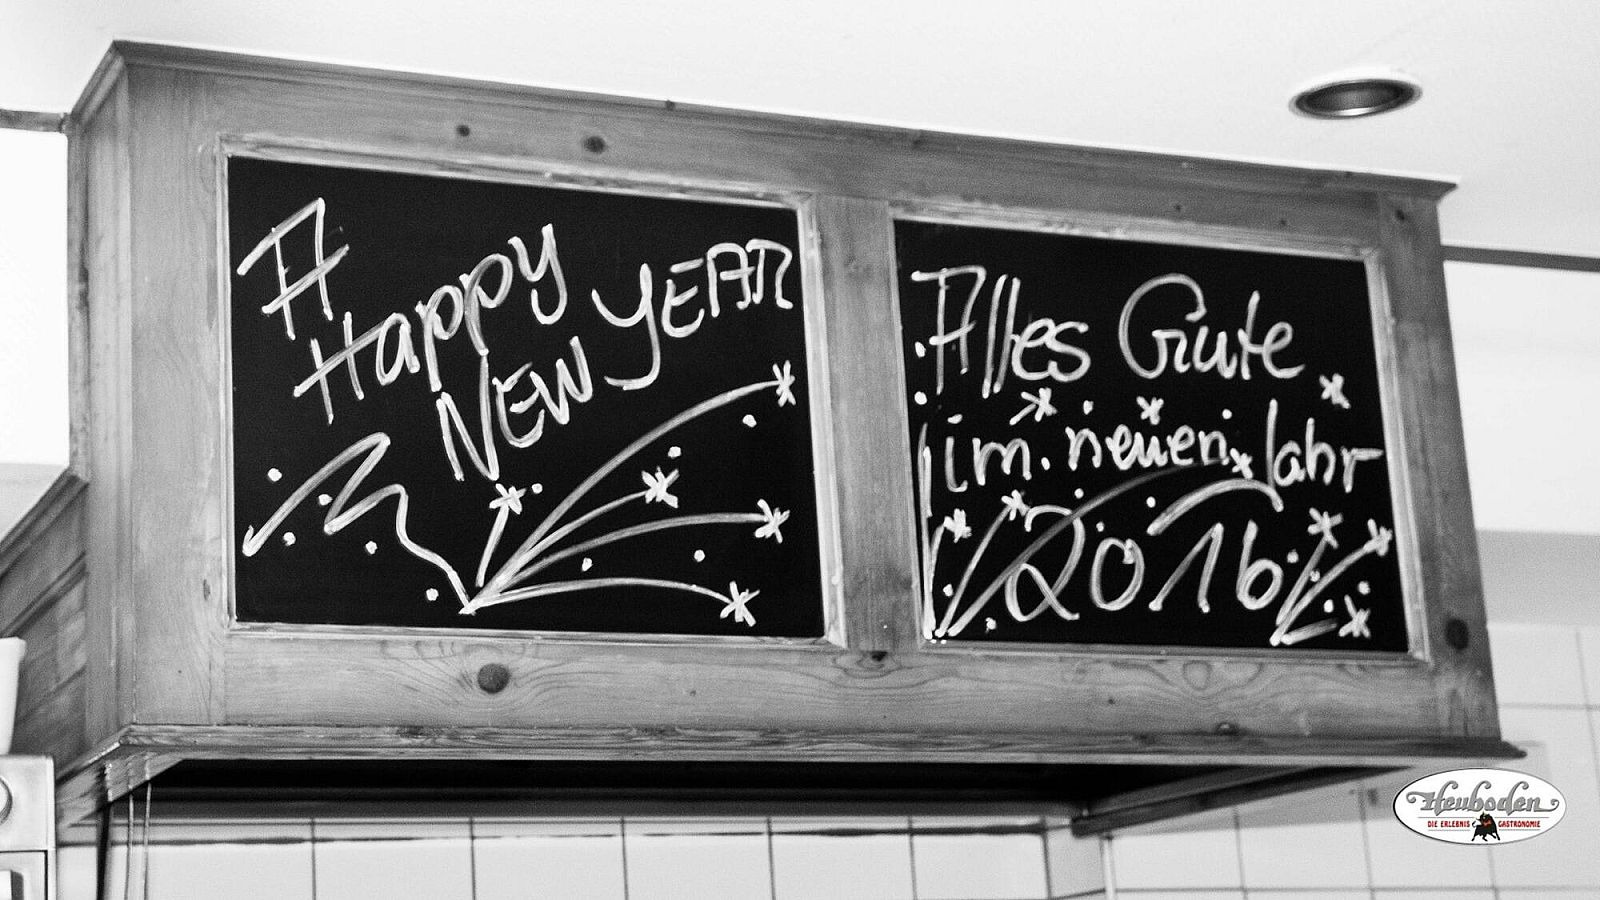 A
Happy
NEW YEAR
Alles Gute
im neuen Jahr
2016
Heuboden
DIE ERLEBNIS GASTRONOMIE